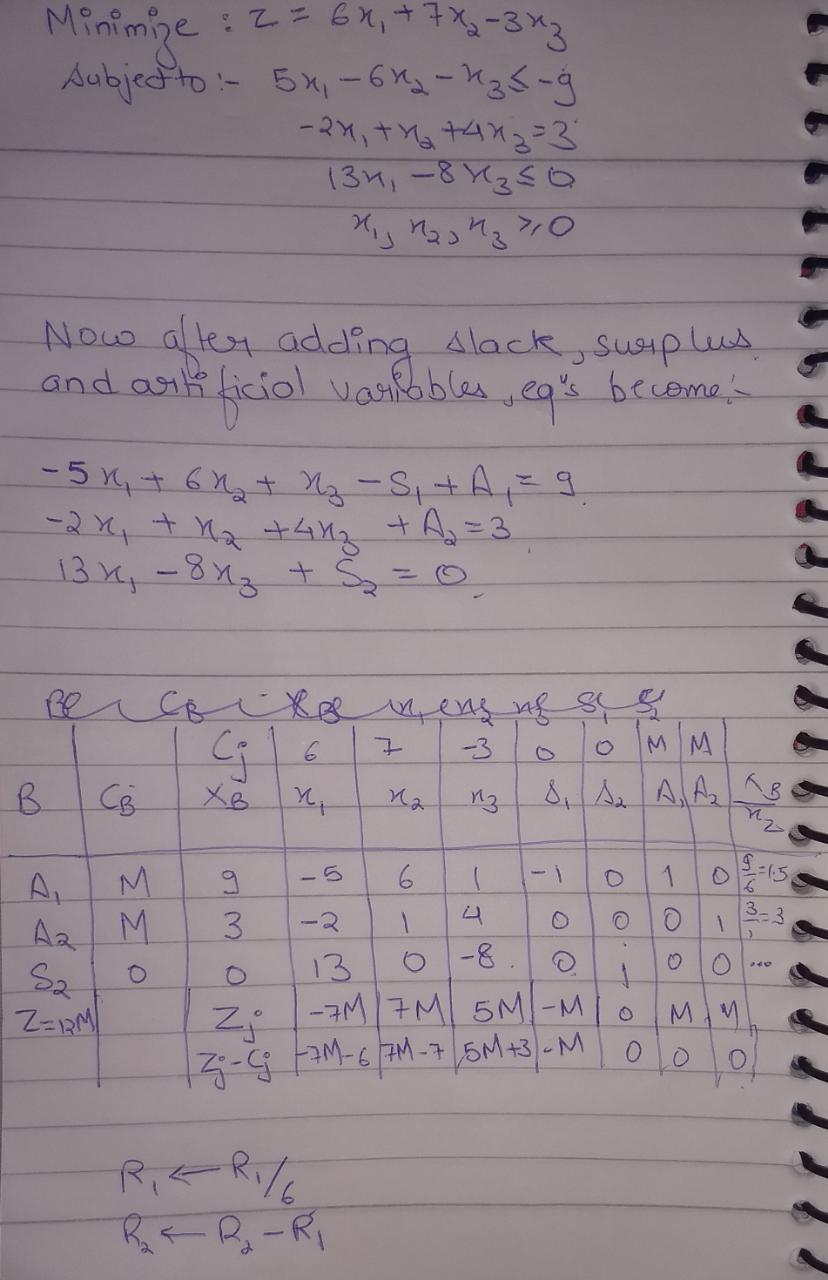 Minimize : Z = 6x₁ + 7x₂ - 3x₃
Subject to :- 5x₁ - 6x₂ - x₃ ≤ -9
-2x₁ + x₂ + 4x₃ = 3
13x₁ - 8x₃ ≤ 0
x₁, x₂, x₃ ≥ 0
Now after adding slack, surplus
and artificial variables, eqⁿs become:-
-5x₁ + 6x₂ + x₃ - S₁ + A₁ = 9
-2x₁ + x₂ + 4x₃ + A₂ = 3
13x₁ - 8x₃ + S₂ = 0
Cj 6 7 -3 0 0 M M
B CB XB x₁ x₂ x₃ S₁ S₂ A₁ A₂ XB/x₂
A₁ M 9 -5 6 1 -1 0 1 0 9/6=1.5
A₂ M 3 -2 1 4 0 0 0 1 3/1=3
S₂ 0 0 13 0 -8 0 1 0 0 ...
Z=12M Zj -7M 7M 5M -M 0 M M
Zj-Cj -7M-6 7M-7 5M+3 -M 0 0 0
R₁ ← R₁/6
R₂ ← R₂ - R₁